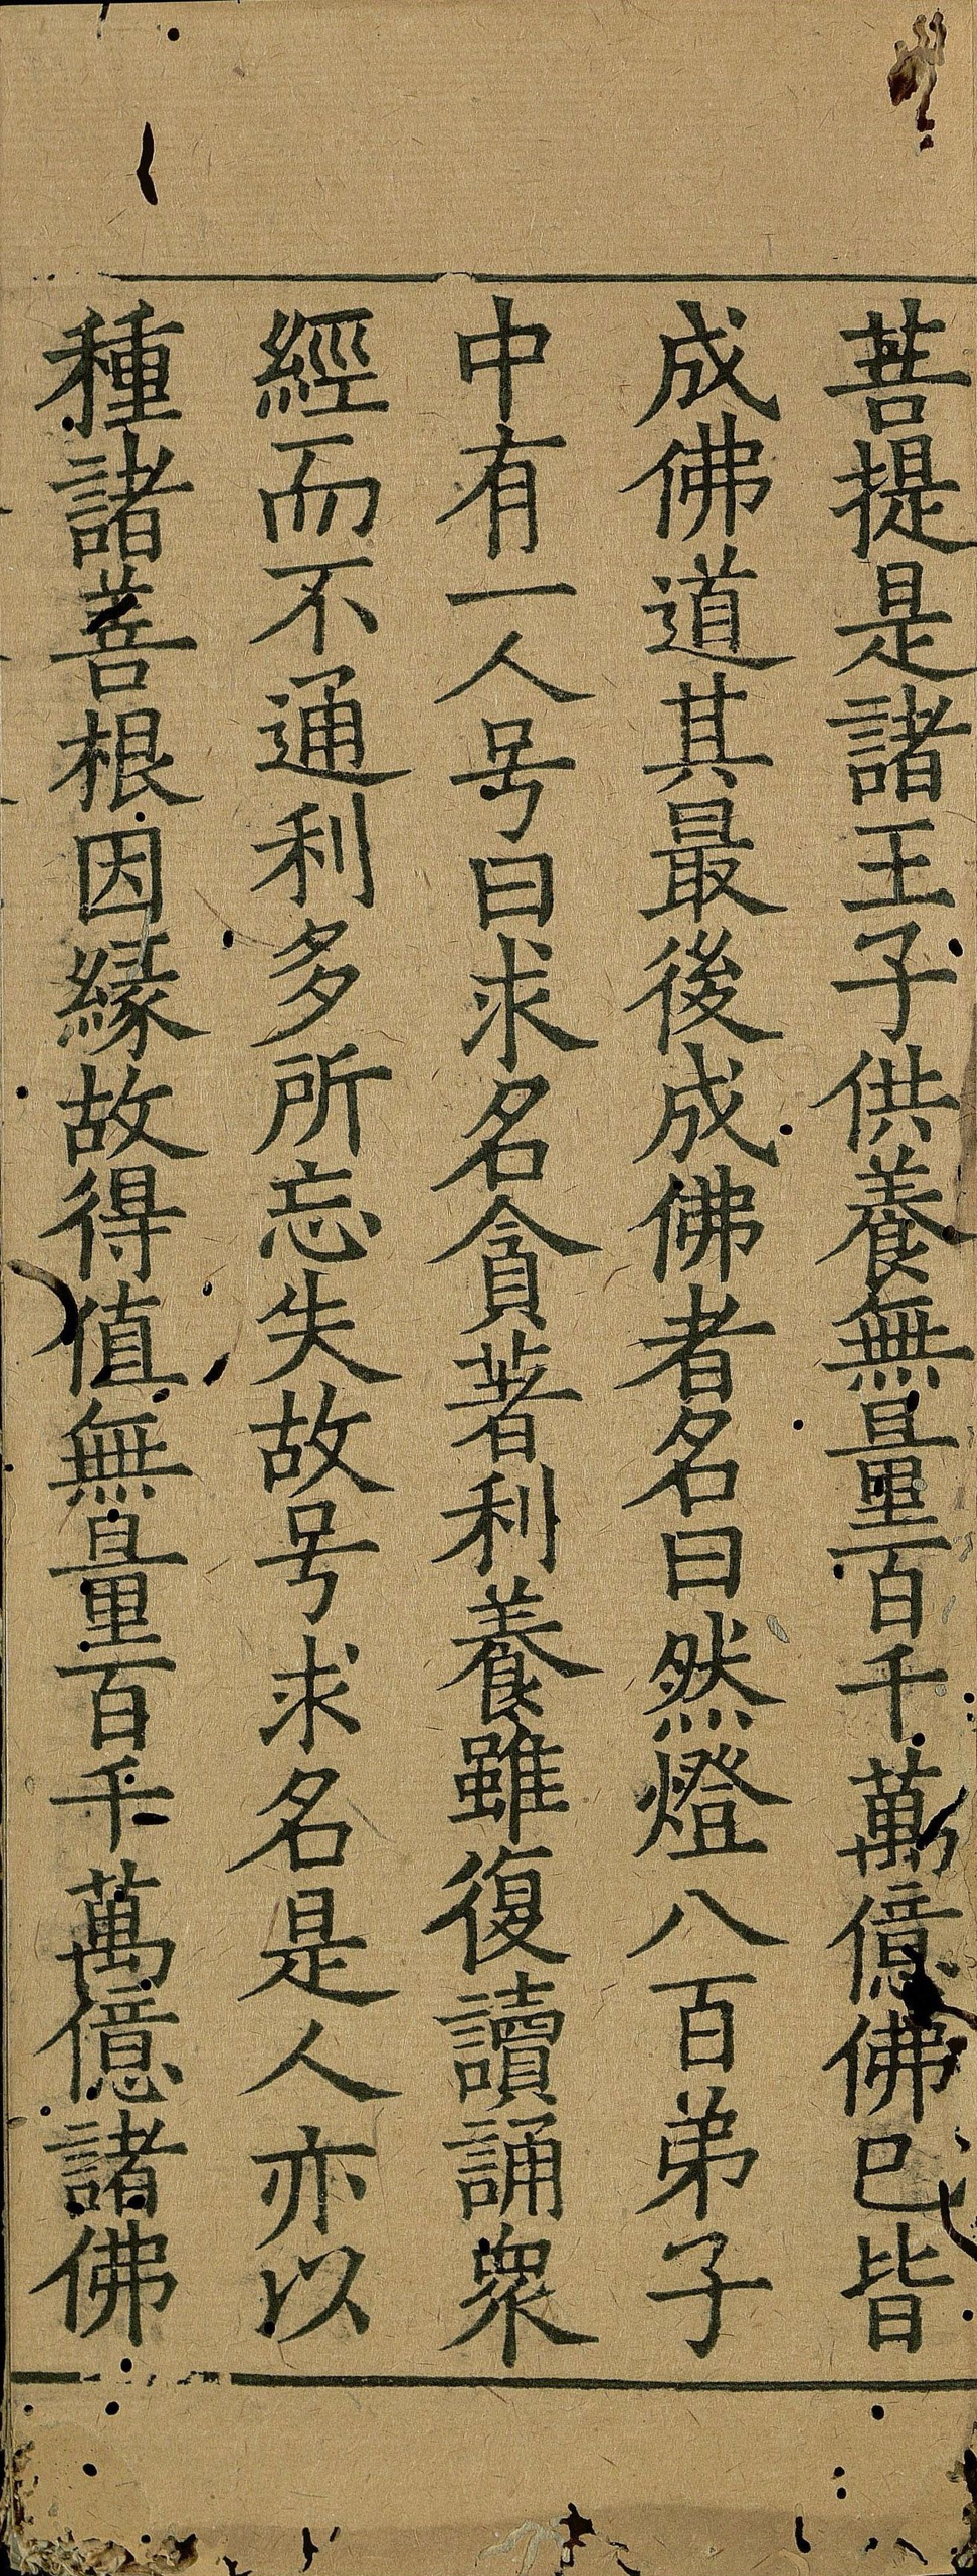 菩提是諸王子供養無量百千萬億佛已皆
成佛道其最後成佛者名曰然燈八百弟子
中有一人号曰求名貪著利養雖復讀誦眾
經而不通利多所忘失故号求名是人亦以
種諸善根因緣故得值無量百千萬億諸佛